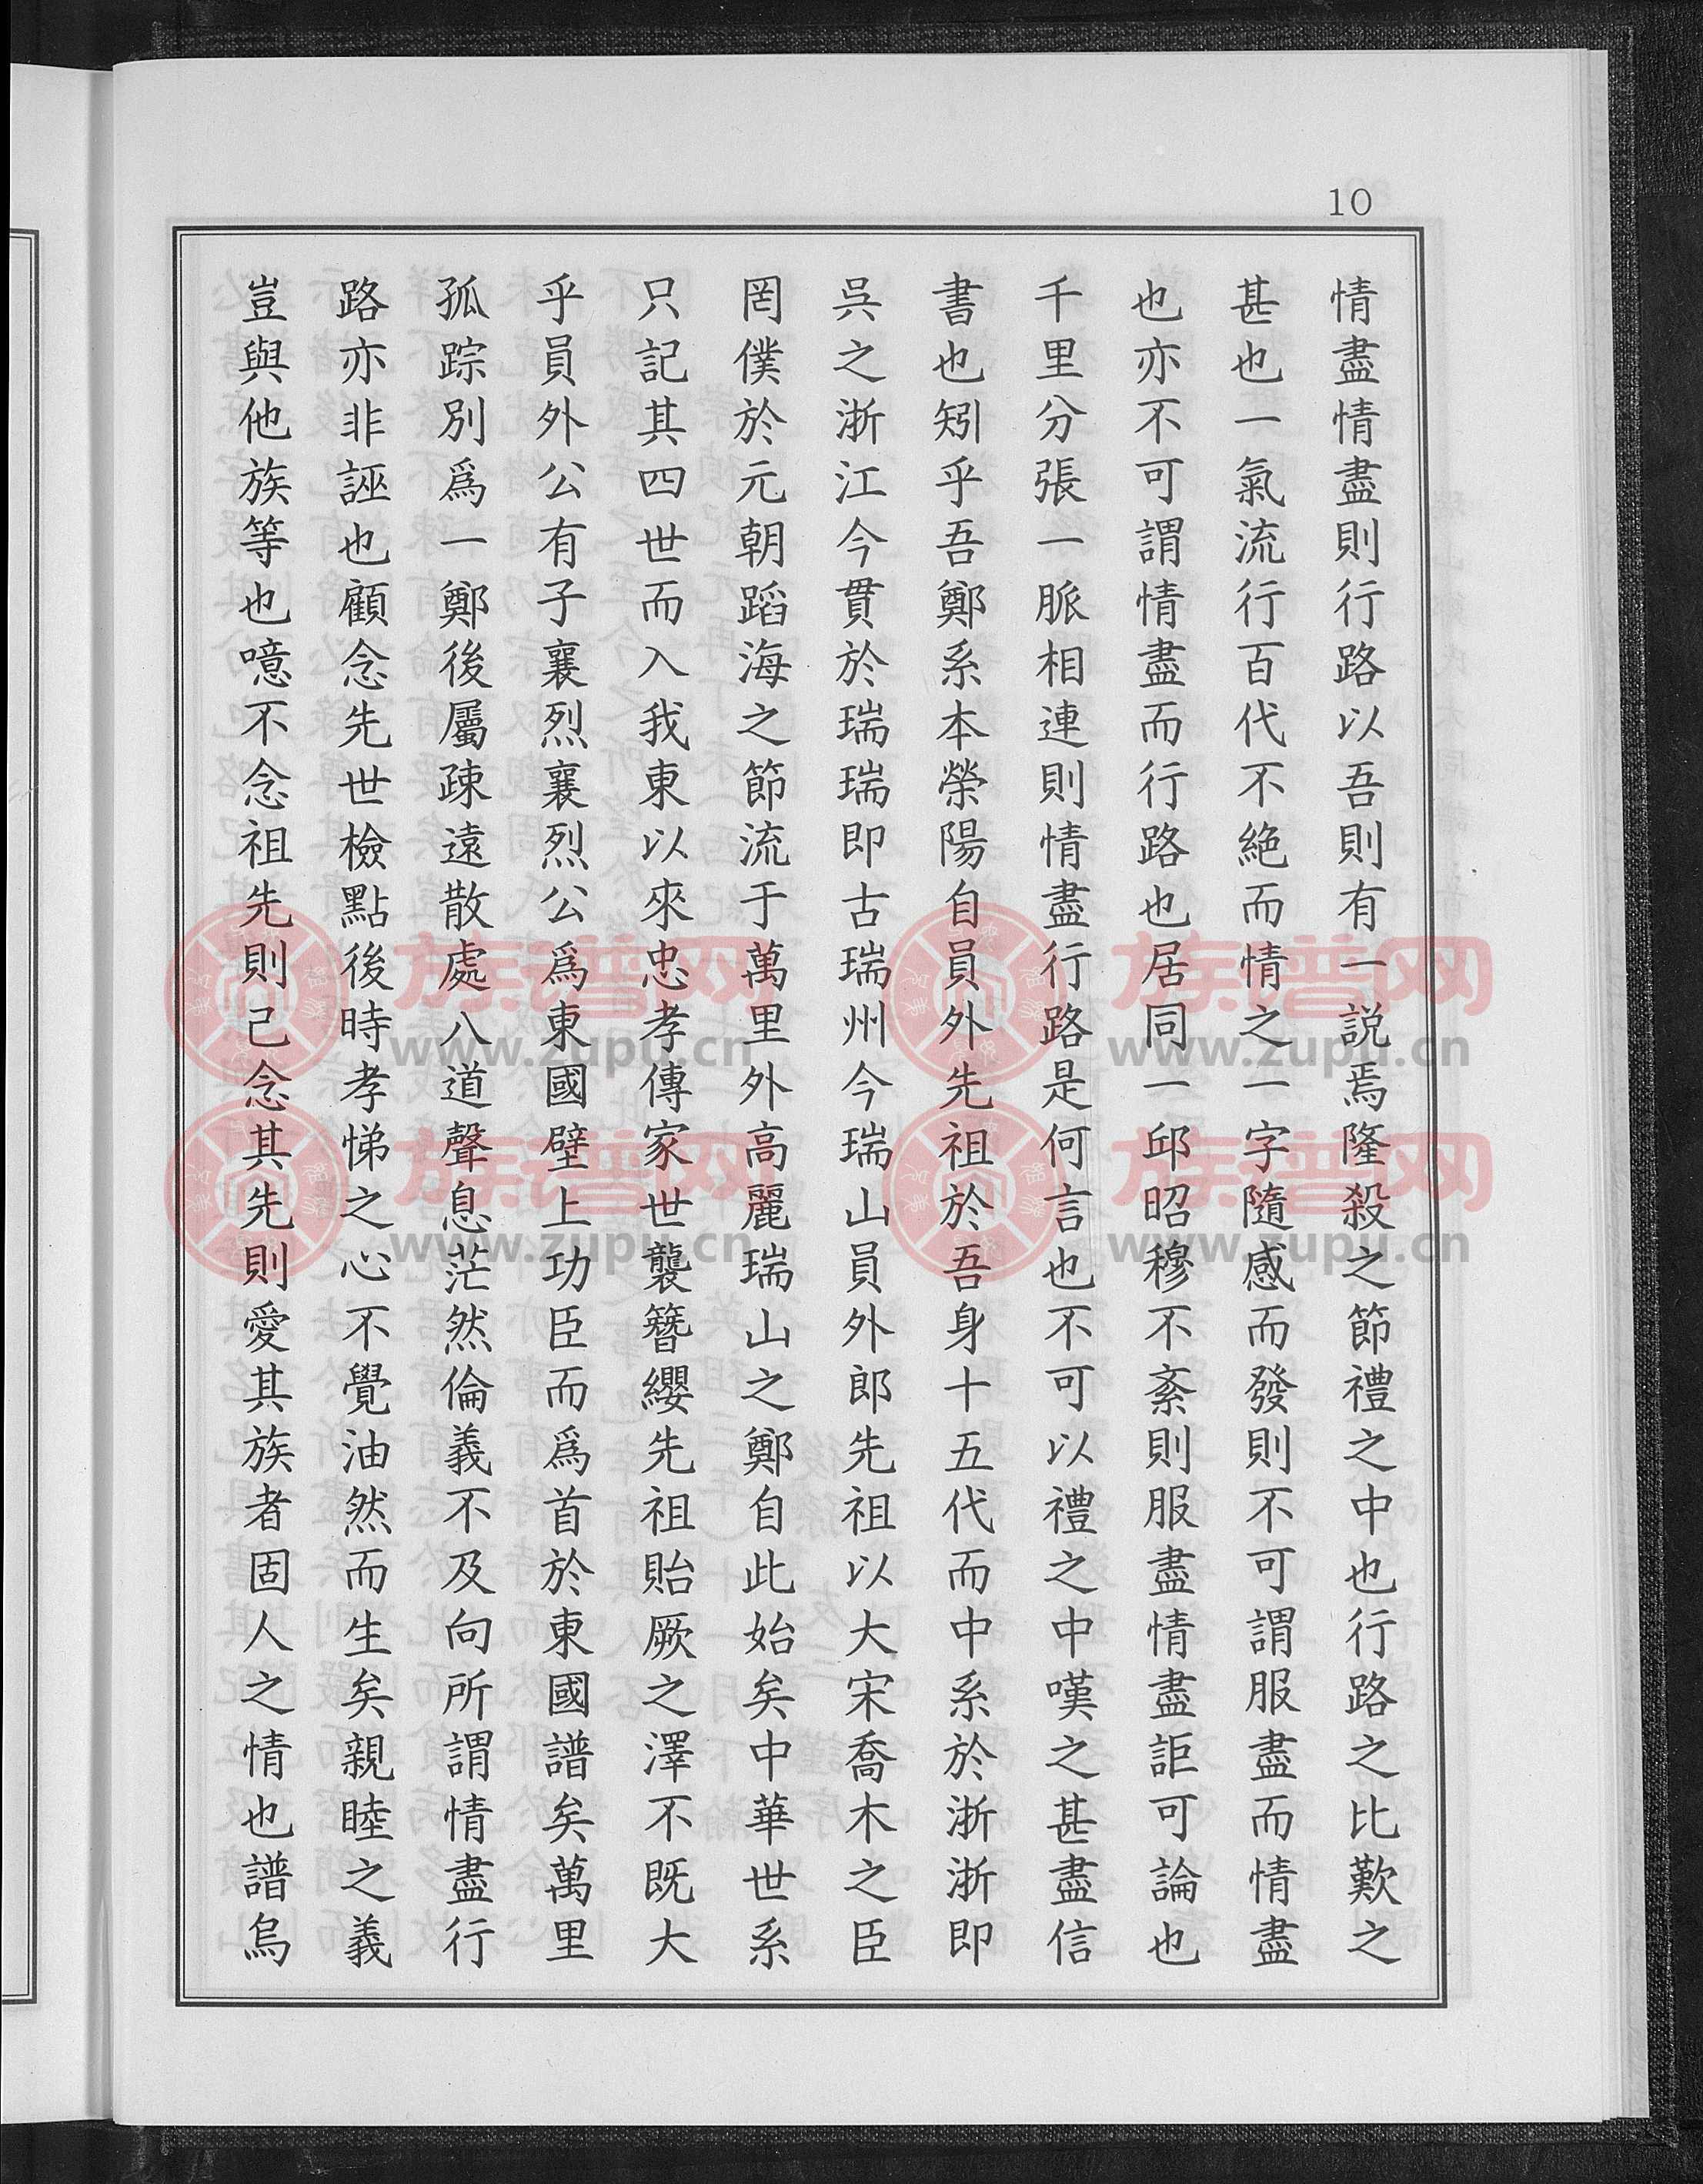 10
情盡情盡則行路以吾則有一説焉隆殺之節禮之中也行路之比歎之
甚也一氣流行百代不絶而情之一字隨感而發則不可謂服盡而情盡
也亦不可謂情盡而行路也居同一邱昭穆不紊則服盡情盡詎可論也
千里分張一脈相連則情盡行路是何言也不可以禮之中嘆之甚盡信
書也矧乎吾鄭系本榮陽自員外先祖於吾身十五代而中系於浙浙即
吳之浙江今貫於瑞瑞即古瑞州今瑞山員外郎先祖以大宋喬木之臣
罔僕於元朝蹈海之節流于萬里外高麗瑞山之鄭自此始矣中華世系
只記其四世而入我東以來忠孝傳家世襲簪纓先祖貽厥之澤不既大
乎員外公有子襄烈襄烈公爲東國壁上功臣而爲首於東國譜矣萬里
孤踪別爲一鄭後屬疎遠散處八道聲息茫然倫義不及向所謂情盡行
路亦非誣也顧念先世檢點後時孝悌之心不覺油然而生矣親睦之義
豈與他族等也噫不念祖先則己念其先則愛其族者固人之情也譜烏
族谱网
www.zupu.cn
族谱网
www.zupu.cn
族谱网
www.zupu.cn
族谱网
www.zupu.cn